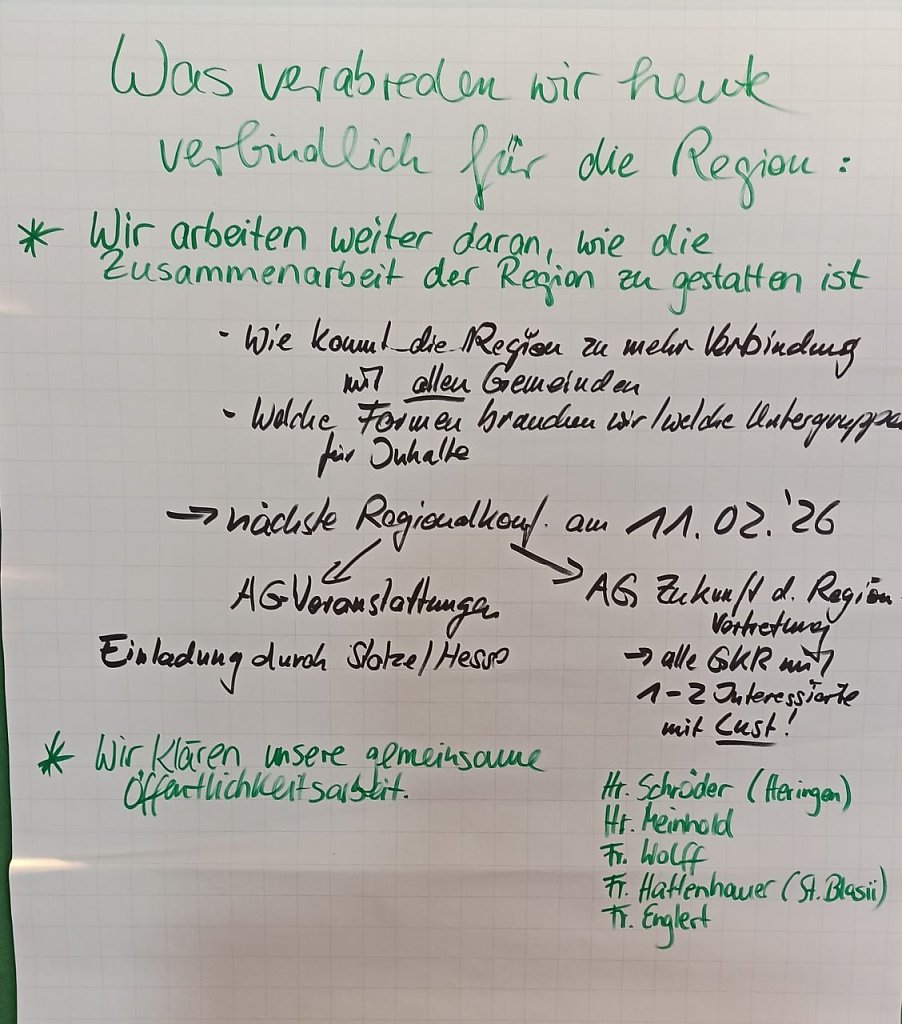 Was verabreden wir heute
verbindlich für die Region:
* Wir arbeiten weiter daran, wie die
Zusammenarbeit der Region zu gestalten ist
- Wie kommt die Region zu mehr Verbindung
mit allen Gemeinden
- Welche Formen brauchen wir / welche Untergruppen
für Inhalte
→ nächste Regionalkonf. am 11.02.'26
AG Veranstaltungen
Einladung durch
AG Zukunft d. Region
Vertretung
→ alle GKR mit
1-2 Interessierte
mit Lust!
* Wir klären unsere gemeinsame
Öffentlichkeitsarbeit.
Hr. Schröder (Heringen)
Hr. Meinhold
Fr. Wolff
Fr. Hattenhauer (St. Blasii)
Fr. Englert